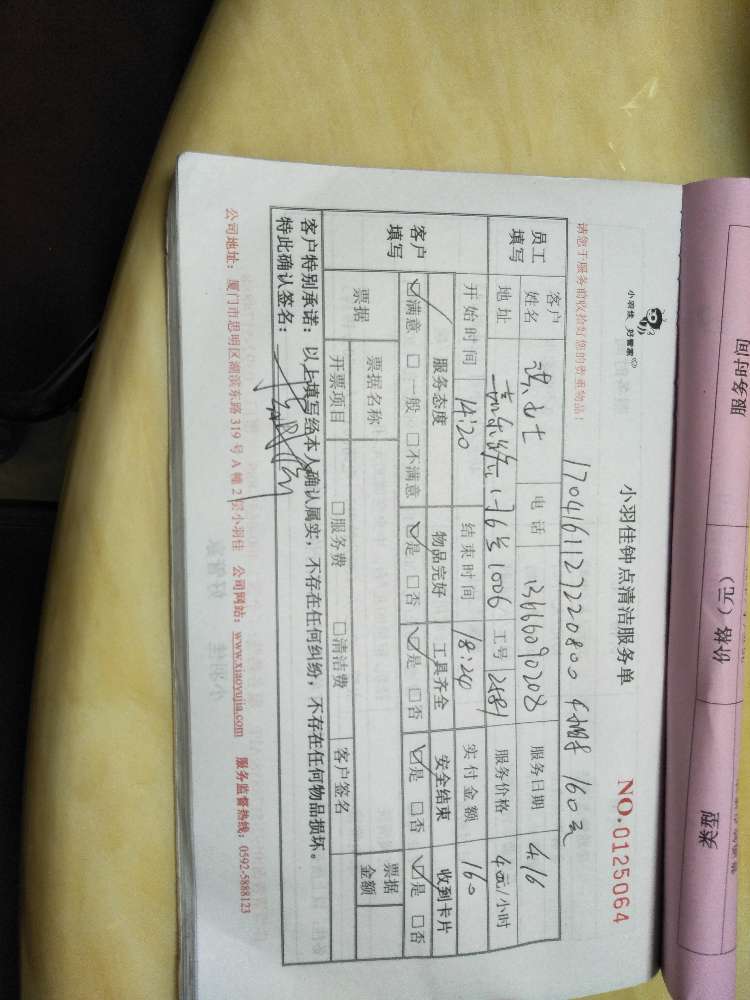 服务时间
价格（元）
类型
小羽佳 好管家
小羽佳钟点清洁服务单
NO.0125064
请您于服务前收拾好您的贵重物品！
1704161127220800 4小时 160元
员工填写
客户姓名 女士 电话 13666090208 服务日期 4.16
地址 嘉禾路 号1006 工号 2581 服务价格 元/小时
客户填写
开始时间 14:20 结束时间 18:20 实付金额 160
服务态度 物品完好 工具齐全 安全结束 收到卡片
☑满意 □一般 □不满意 ☑是 □否 ☑是 □否 ☑是 □否 ☑是 □否
票据 票据名称 票据金额
开票项目 □服务费 □清洁费 客户签名
客户特别承诺：以上填写经本人确认属实，不存在任何纠纷，不存在任何物品损坏。
特此确认签名：
公司地址：厦门市思明区湖滨东路 319 号 A 幢 2 层小羽佳 公司网站：www.xiaoyujia.com 服务监督热线：0592-5888123